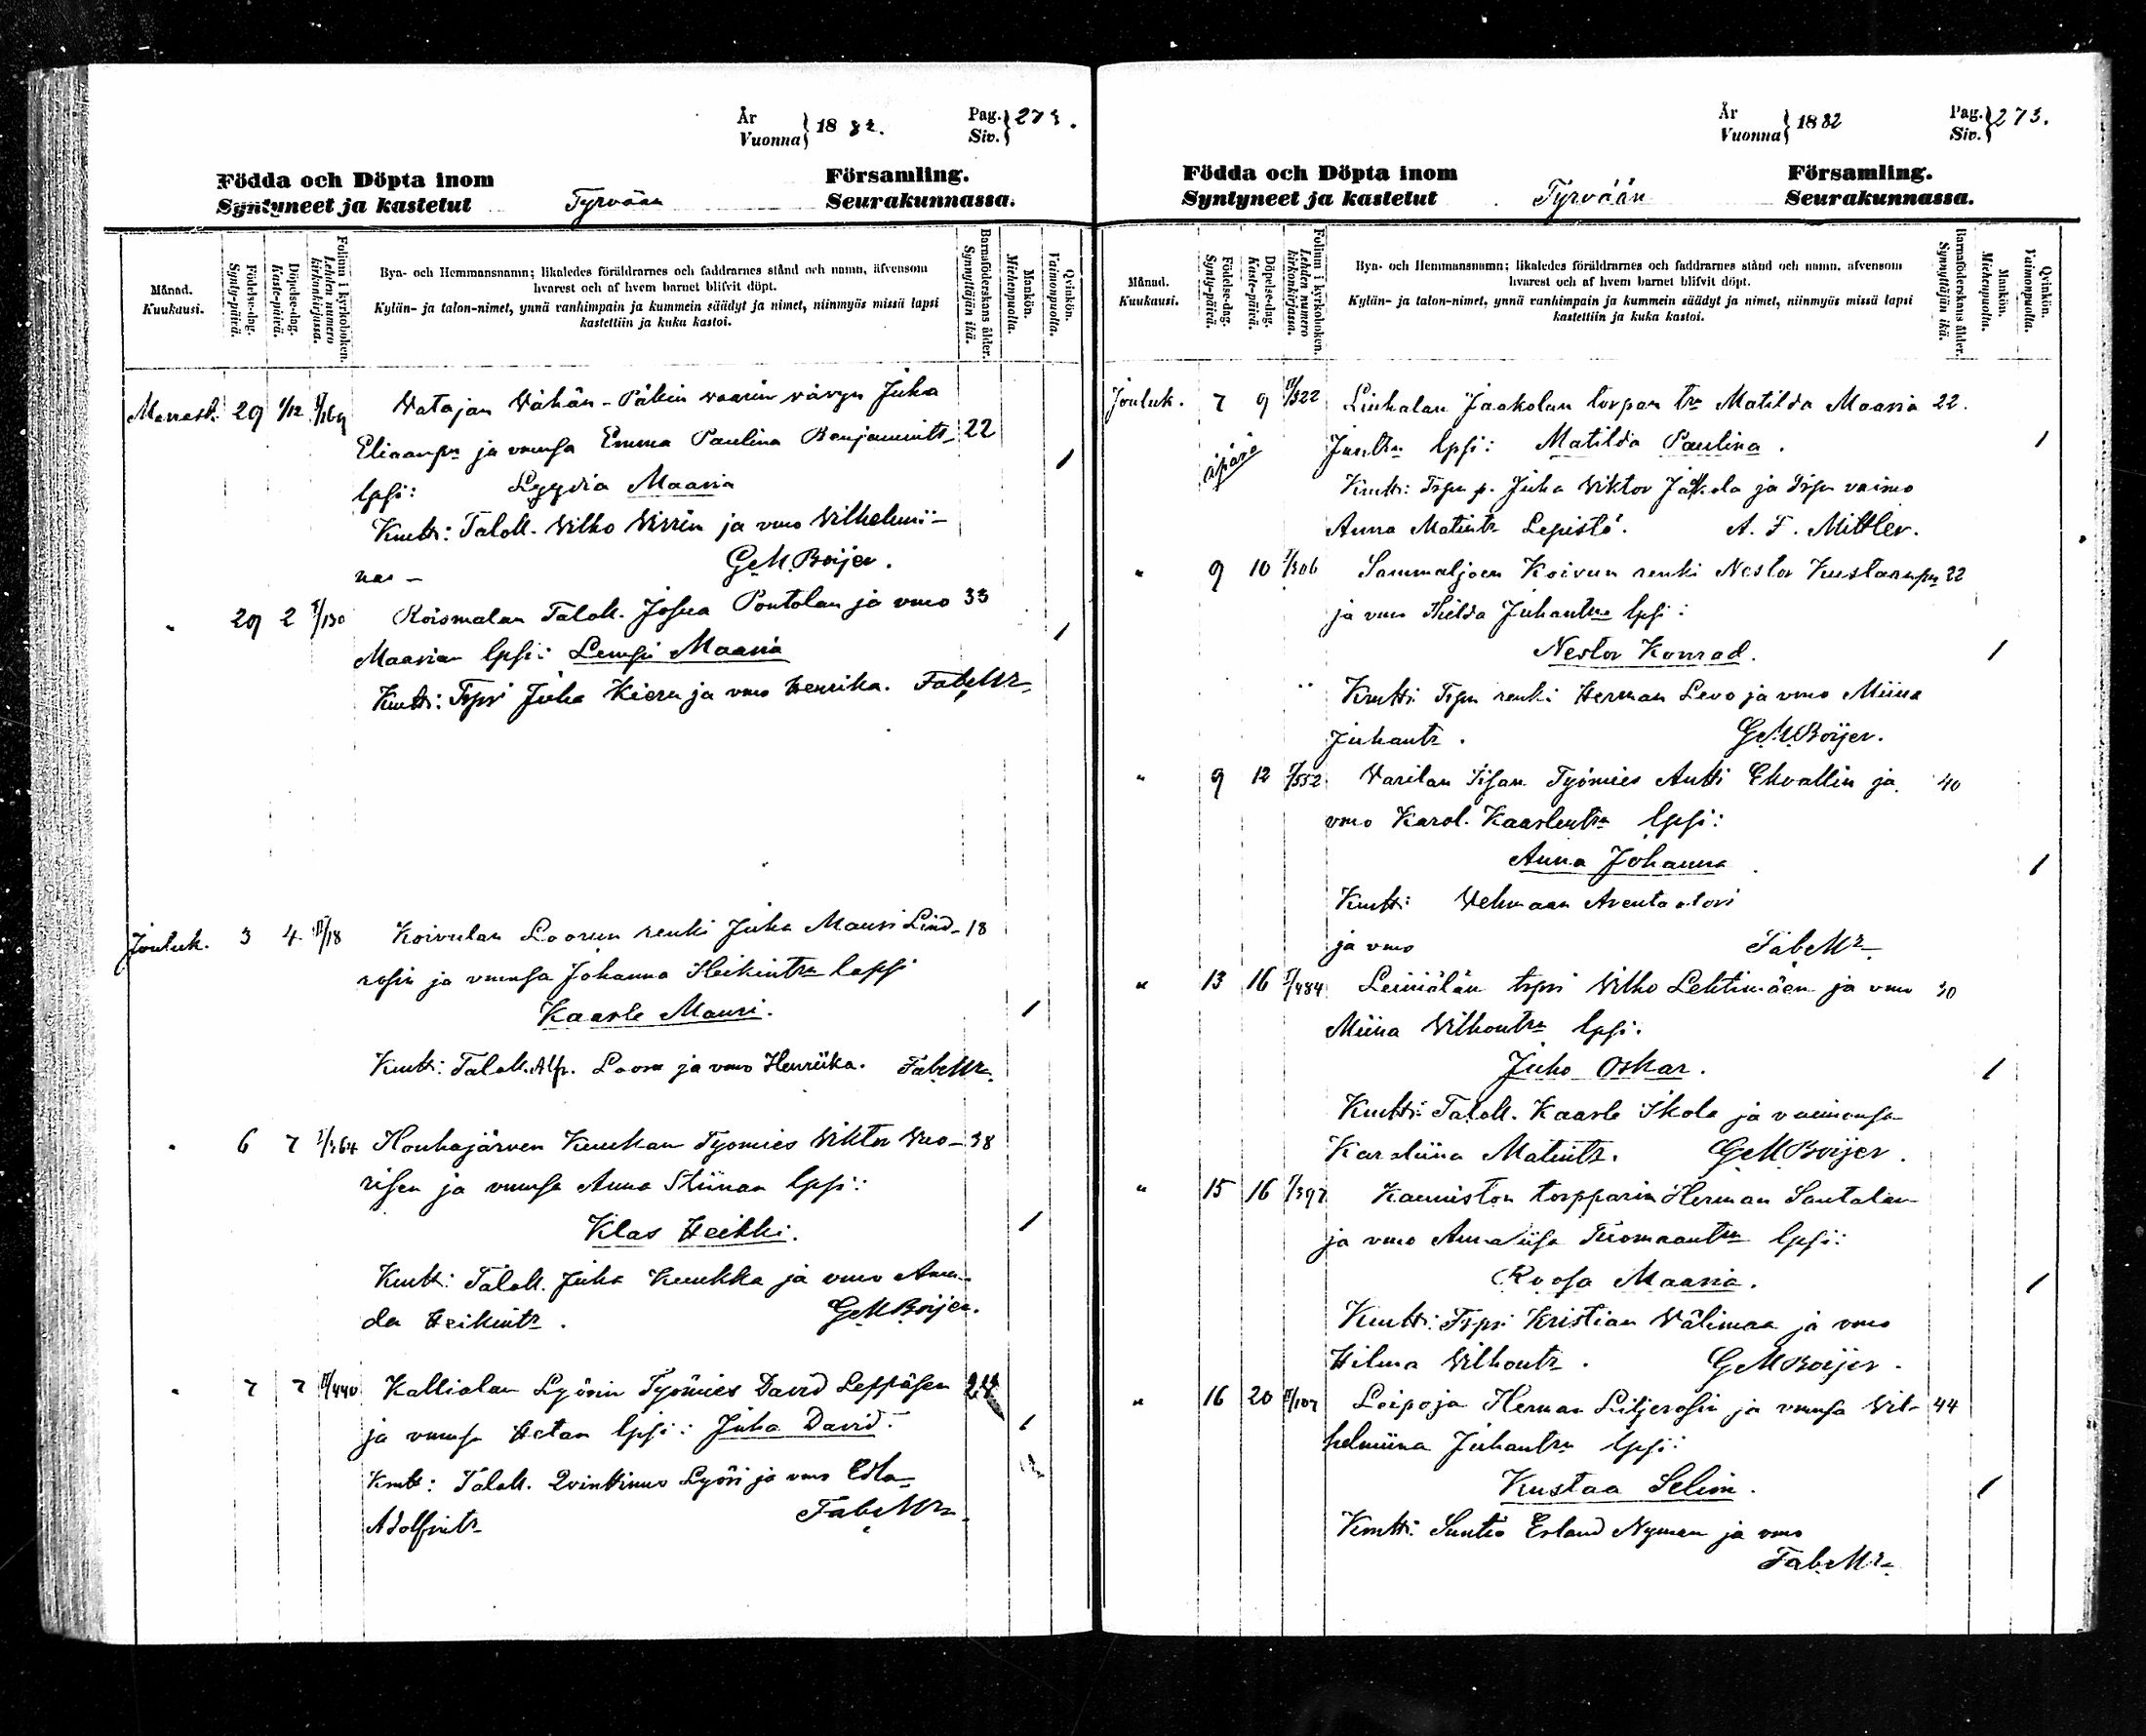 År
Vuonna } 1882.
Pag.
Siv. } 273.
Födda och Döpta inom Församling.
Syntyneet ja kastetut Tyrvään Seurakunnassa.
Månad.
Kuukausi.
Födelse-dag.
Synty-päivä.
Döpelse-dag.
Kaste-päivä.
Folium i kyrkoboken.
Lehden numero
kirkonkirjassa.
Bya- och Hemmansnamn; likaledes föräldrarnes och faddrarnes stånd och namn, äfvensom
hvarest och af hvem barnet blifvit döpt.
Kylän- ja talon-nimet, ynnä vanhimpain ja kummein säädyt ja nimet, niinmyös missä lapsi
kastettiin ja kuka kastoi.
Barnaföderskans ålder.
Synnyttäjän ikä.
Mankön.
Miehenpuolta.
Qvinkön.
Vaimonpuolta.
Marrask. 29 1/12 Watajan Wähän-Päkin vaarin vävyn Juha
Eliaanpn ja vmnsa Emma Paulina Benjamintr 22
lpsi: Lyydia Maaria 1
Kmtti: Taloll. Wilho Wirrin ja vmo Wilhelmii-
nas - G M Boijer.
" 29 2 /130 Roismalan Taloll. Josua Pontolan ja vmo 33
Maarian lpsi: Lempi Maaria 1
Kmtti: Trpri Juha Kieru ja vmo Henrika. Fab. Mr
Jouluk. 3 4 /18 Koivulan Loorun renki Juha Mauri Lind- 18
rosin ja vmnsa Johanna Heikintrn lapsi
Kaarle Mauri. 1
Kmtti: Taloll. Alfr. Looru ja vmo Henriika. Fab. Mr
" 6 7 /364 Houhajärven Kuukan Työmies Viktor Wuo- 38
risen ja vmnsa Anna Stiinan lpsi:
Klas Heikki. 1
Kmtti: Taloll. Juha Kuukka ja vmo Aman-
da Heikintr. G M Boijer.
" 7 7 /440 Kallialan Lyörin Työmies David Leppäsen
ja vmnsa Hetan lpsi: Juha David. 1
Kmtt: Taloll. Qvinttinus Lyöri ja vmo Edla
Adolfintr Fab. Mr
År
Vuonna } 1882
Pag.
Siv. } 273.
Födda och Döpta inom Församling.
Syntyneet ja kastetut Tyrvään Seurakunnassa.
Månad.
Kuukausi.
Födelse-dag.
Synty-päivä.
Döpelse-dag.
Kaste-päivä.
Folium i kyrkoboken.
Lehden numero
kirkonkirjassa.
Bya- och Hemmansnamn; likaledes föräldrarnes och faddrarnes stånd och namn, äfvensom
hvarest och af hvem barnet blifvit döpt.
Kylän- ja talon-nimet, ynnä vanhimpain ja kummein säädyt ja nimet, niinmyös missä lapsi
kastettiin ja kuka kastoi.
Barnaföderskans ålder.
Synnyttäjän ikä.
Mankön.
Miehenpuolta.
Qvinkön.
Vaimonpuolta.
Jouluk. 7 9 /322 Liuhalan Jaakolan torpan trn Matilda Maaria 22.
äpärä lpsi: Matilda Paulina. 1
Kmtti: Trpn p. Juha Viktor Jaakola ja Trpn vaimo
Anna Matintr Lepistö. A. F. Mittler.
" 9 10 /306 Sammaljoen Koivun renki Nestor Kustaanpn 22
ja vmo Hilda Juhantrn lpsi:
Nestor Konrad. 1
Kmtti: Trpn renki Herman Levo ja vmo Miina
Juhantr. G M Boijer.
" 9 12 /552 Varilan Työmies Antti Ekvallin ja 40
vmo Karol. Kaarlentrn lpsi:
Anna Johanna 1
Kmtti: Vehmaan Arentaatori
ja vmo Fab. Mr
" 13 16 /484 Leiniälän trpri Vilho Lehtimäen ja vmo 30
Miina Vilhontrn lpsi:
Juho Oskar. 1
Kmtti: Taloll. Kaarle Ikola ja vaimonsa
Karoliina Matintr. G M Boijer.
" 15 16 /397 Kauniston torpparin Herman Santalan
ja vmo Annaliisa Tuomaantrn lpsi:
Roosa Maaria. 1
Kmtti: Trpri Kristian Välimaa ja vmo
Hilma Vilhontr. G M Boijer.
" 16 20 /107 Loipoja Herman Liljerosin ja vmnsa Vil- 44
helmiina Juhantrn lpsi:
Kustaa Selim. 1
Kmtti: Suntio Erland Nyman ja vmo
Fab. Mr